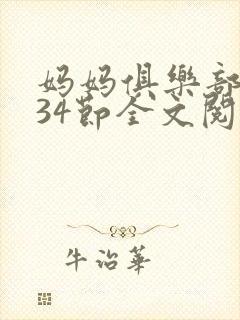 妈妈俱樂部
34節全文閱
牛治華